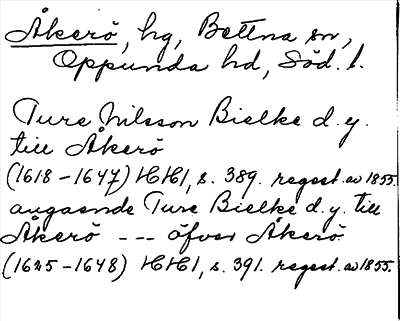 Åkerö, hg, Bettna sn,
Oppunda hd, Söd. l.
Ture Nilsson Bielke d.y.
till Åkerö
(1618-1647) HH1, s. 389. regest. av 1855.
angaende Ture Bielke d.y. till
Åkerö --- öfver Åkerö
(1625-1648) HH1, s. 391. regest. av 1855.